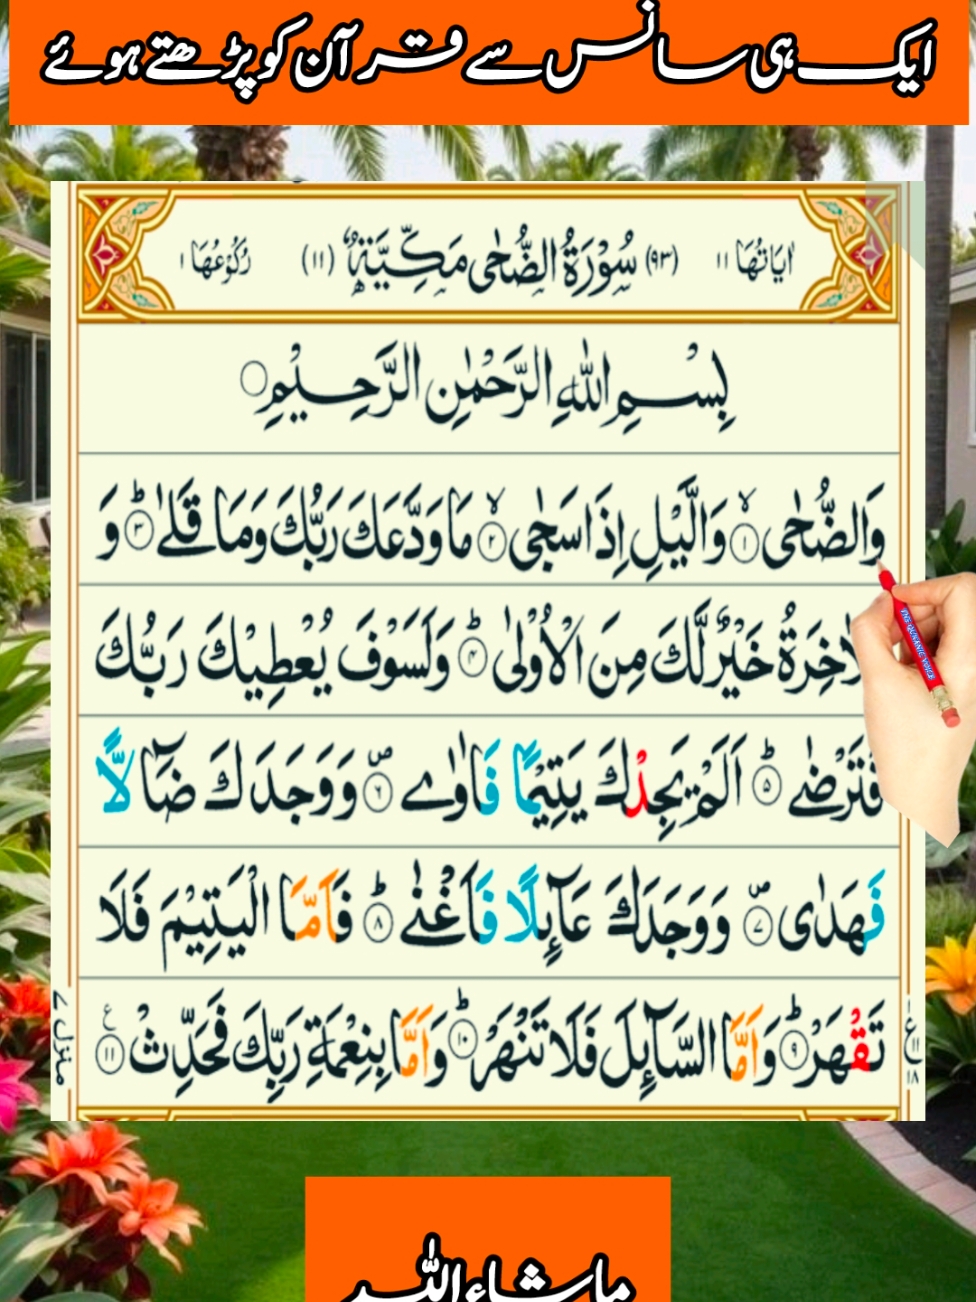 ایک ہی سانس سے قرآن کو پڑھتے ہوئے
اٰیَاتُهَا ۱۱ (۹۳) سُوْرَةُ الضُّحٰی مَكِّیَّةٌ (۱۱) رُكُوْعُهَا ۱
بِسْمِ اللّٰهِ الرَّحْمٰنِ الرَّحِیْمِ
وَالضُّحٰی ۙ﴿۱﴾ وَالَّیْلِ اِذَا سَجٰی ۙ﴿۲﴾ مَا وَدَّعَكَ رَبُّكَ وَمَا قَلٰی ؕ﴿۳﴾ وَ
لَلْاٰخِرَةُ خَیْرٌ لَّكَ مِنَ الْاُوْلٰی ؕ﴿۴﴾ وَلَسَوْفَ یُعْطِیْكَ رَبُّكَ
فَتَرْضٰی ؕ﴿۵﴾ اَلَمْ یَجِدْكَ یَتِیْمًا فَاٰوٰی ۪﴿۶﴾ وَوَجَدَكَ ضَآلًّا
فَهَدٰی ۪﴿۷﴾ وَوَجَدَكَ عَآىِٕلًا فَاَغْنٰی ؕ﴿۸﴾ فَاَمَّا الْیَتِیْمَ فَلَا
تَقْهَرْ ؕ﴿۹﴾ وَاَمَّا السَّآىِٕلَ فَلَا تَنْهَرْ ؕ﴿۱۰﴾ وَاَمَّا بِنِعْمَةِ رَبِّكَ فَحَدِّثْ ﴿۱۱﴾ ع
ع ۱۱ ۱۸
منزل ۷
THE QURANIC VOICE
ماشاءاللہ